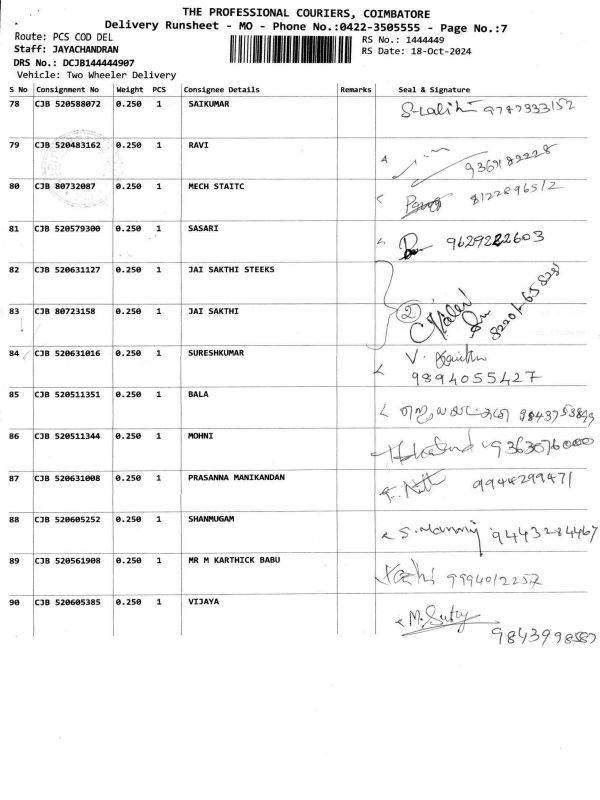 THE PROFESSIONAL COURIERS, COIMBATORE
Delivery Runsheet - MO - Phone No.:0422-3505555 - Page No.:7
Route: PCS COD DEL
RS No.: 1444449
Staff: JAYACHANDRAN
RS Date: 18-Oct-2024
DRS No.: DCJB144444907
Vehicle: Two Wheeler Delivery
S No Consignment No Weight PCS Consignee Details Remarks Seal & Signature
78 CJB 520588072 0.250 1 SAIKUMAR S-Lalih 9787333152
79 CJB 520483162 0.250 1 RAVI
80 CJB 80732087 0.250 1 MECH STAITC 8122896512
81 CJB 520579300 0.250 1 SASARI 9629222603
82 CJB 520631127 0.250 1 JAI SAKTHI STEEKS
83 CJB 80723158 0.250 1 JAI SAKTHI 2
84 CJB 520631016 0.250 1 SURESHKUMAR V.
9894055427
85 CJB 520511351 0.250 1 BALA
86 CJB 520511344 0.250 1 MOHNI 9363076000
87 CJB 520631008 0.250 1 PRASANNA MANIKANDAN 9944299471
88 CJB 520605252 0.250 1 SHANMUGAM 9443284467
89 CJB 520561908 0.250 1 MR M KARTHICK BABU 9994012257
90 CJB 520605385 0.250 1 VIJAYA